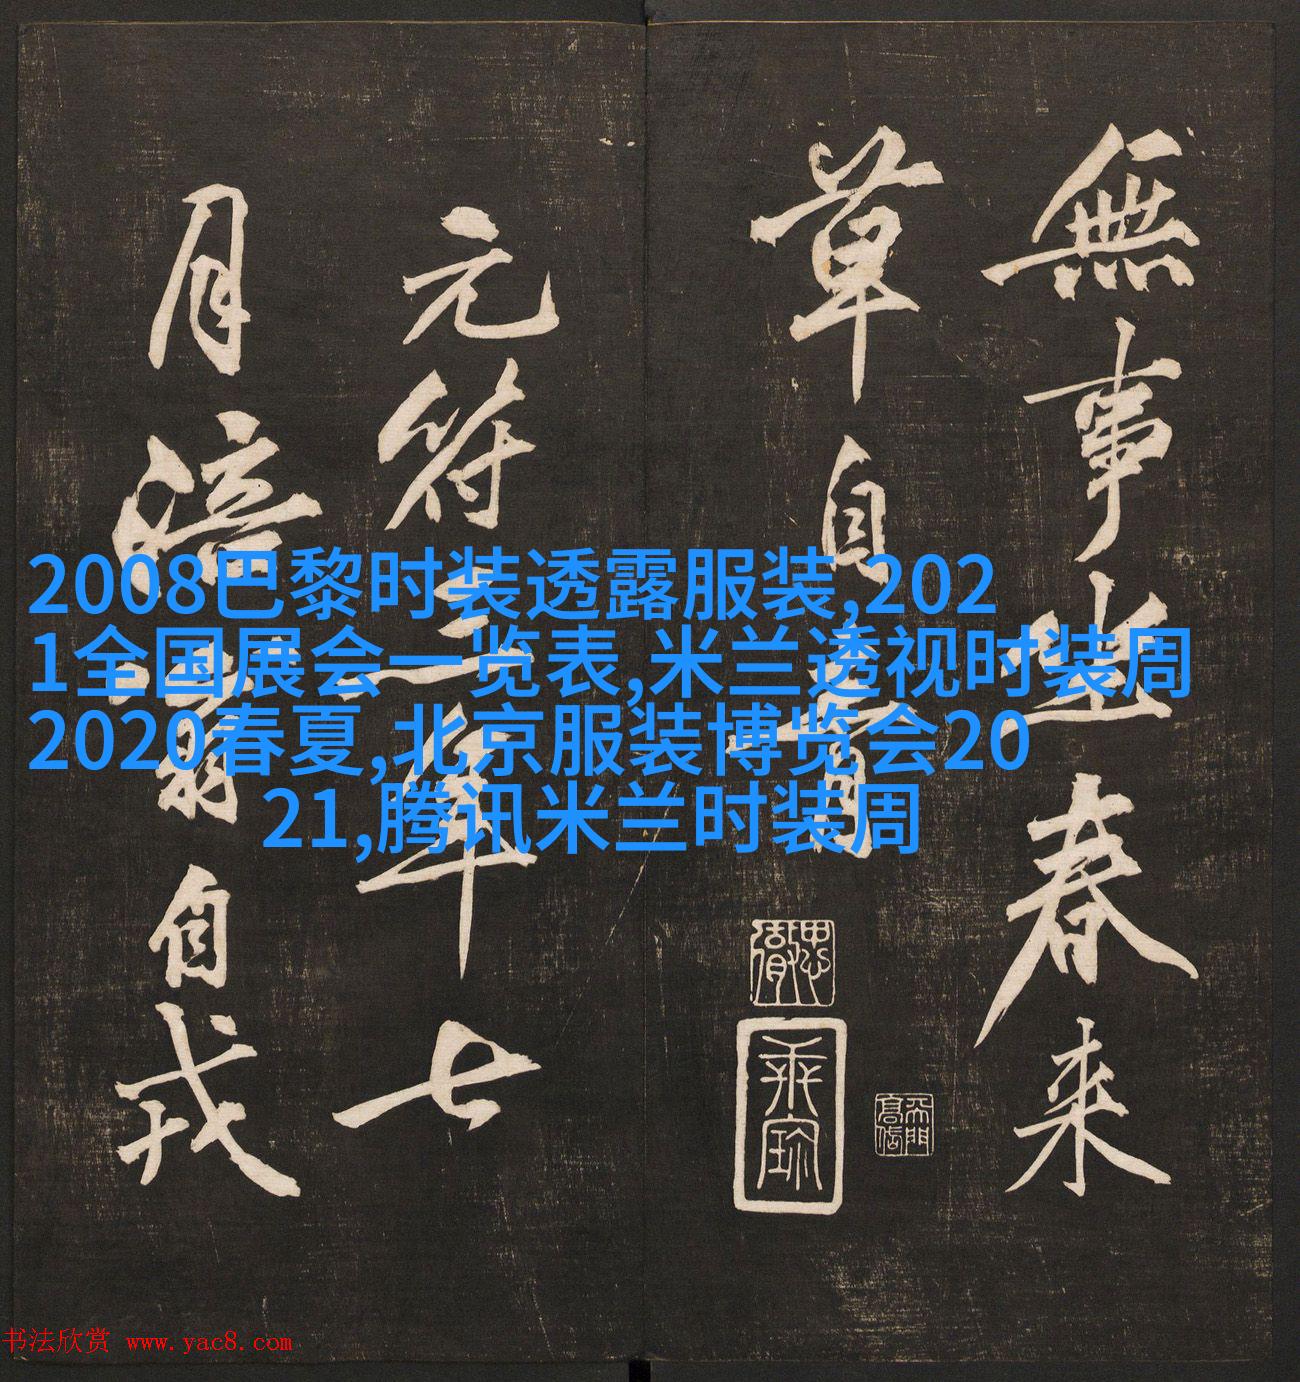 無事坐春来
草自青
元符三年七
月涪翁自戎
2008巴黎时装透露服装,202
1全国展会一览表,米兰透视时装周
2020春夏,北京服装博览会20
21,腾讯米兰时装周
书法欣赏 www.yac8.com